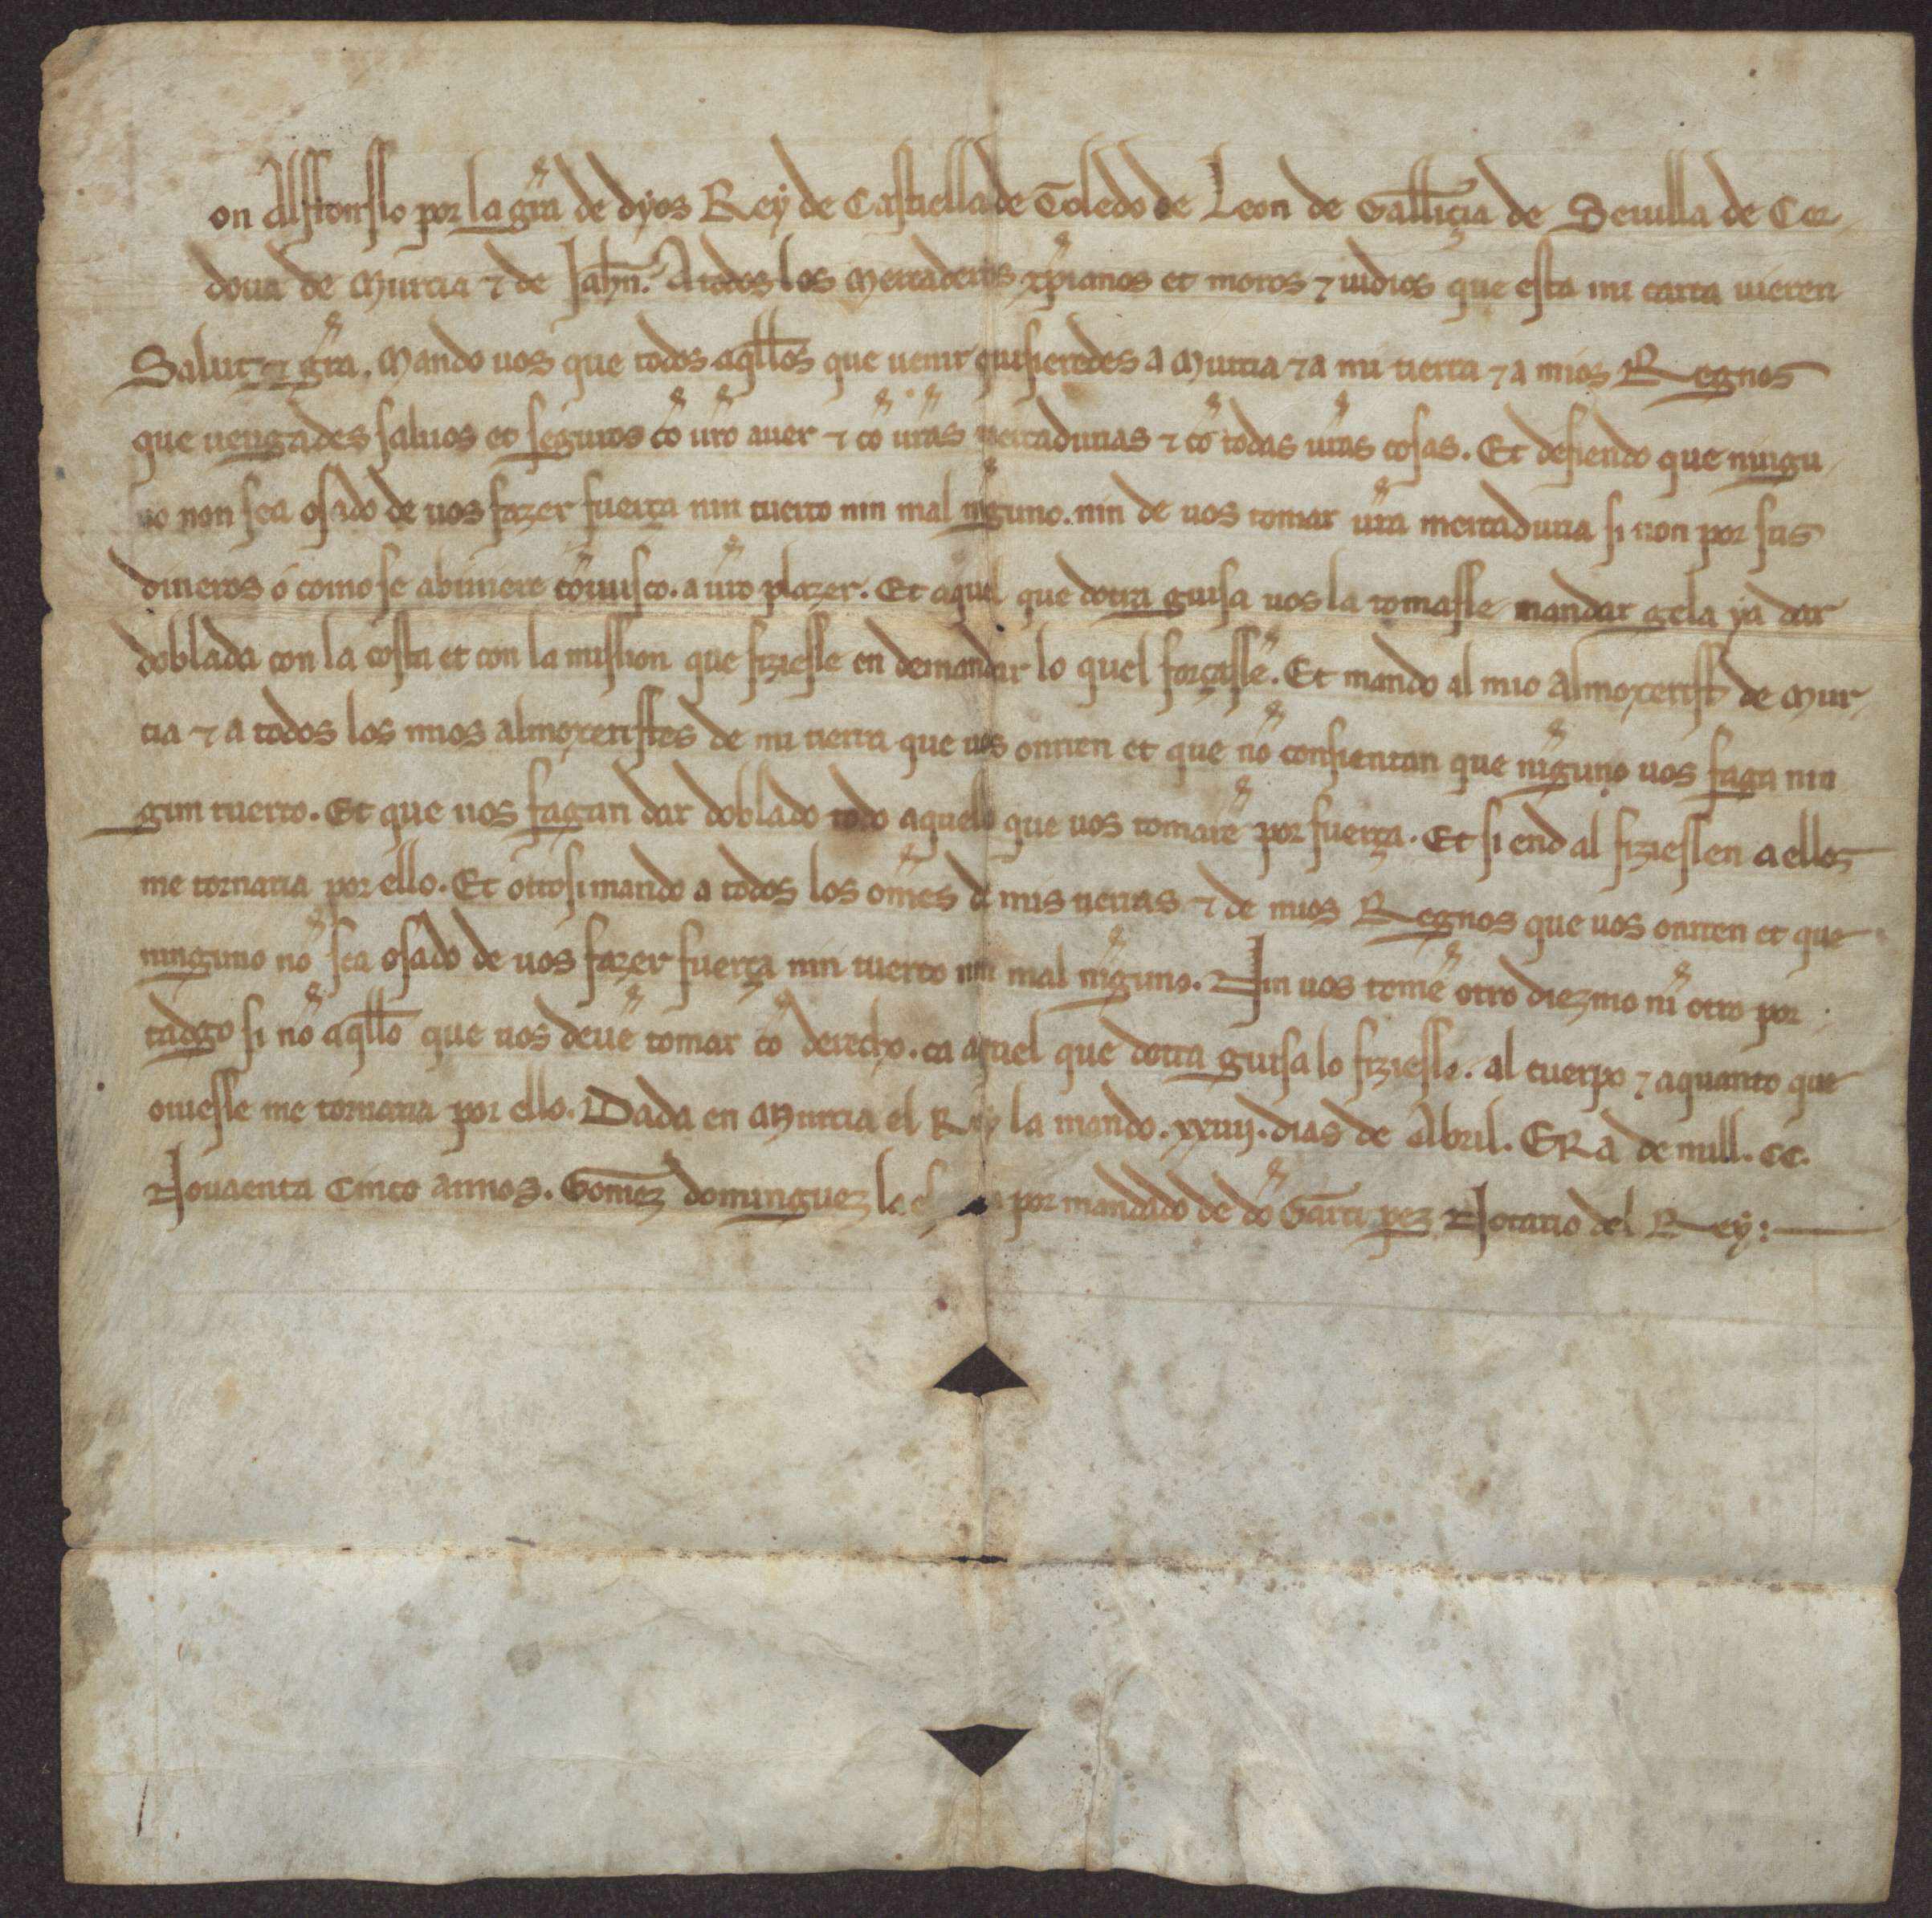 on Alffonsso por la gra de dyos Rey de Castiella de Toledo de Leon de Gallizia de Seuilla de Cor
doua de Murcia τ de Jahn. A todos los Mercaderos xpianos et moros τ iudios que esta mi carta uieren
Salut τ gra. Mando uos que todos aqllos que uenir quisieredes a Murcia τ a mi tierra τ a mios Regnos
que uengades saluos et seguros cō uro auer τ cō uras mercadurias τ cō todas uras cosas. Et defiendo que ningu
no non sea osado de uos fazer fuerça nin tuerto nin mal nīguno. nin de uos tomar ura mercaduria si non por sus
dineros o como se abiniere cōuusco. a uro plazer. Et aquel que dotra guisa uos la tomasse mandar gela ya dar
doblada con la costa et con la mission que fiziesse en demandar lo quel forçassē. Et mando al mio Almoxeriff de Mur
cia τ a todos los mios almoxeriffes de mi tierra que uos onrren et que nō consientan que nīguno uos faga nin
gun tuerto. Et que uos fagan dar doblado todo aquello que uos tomarē por fuerça. Et si end al fiziessen a ellos
me tornaria por ello. Et otrosi mando a todos los oms de mis tierras τ de mios Regnos que uos onrren et que
ninguno nō sea osado de uos fazer fuerça nin tuerto nin mal nīguno. Nin uos tomē otro diezmo nī otro por
tadgo si nō aqllo que uos deuē tomar cō derecho. ca aquel que dotra guisa lo fiziesse. al cuerpo τ a quanto que
ouiesse me tornaria por ello. Dada en Murcia el Rey la mando. xxiiij. dias de Abril. ERa de mill. cc.
Nouaenta Cinco annos. Gomez dominguez la por mandado de dō Garci pez Notario del Rey: